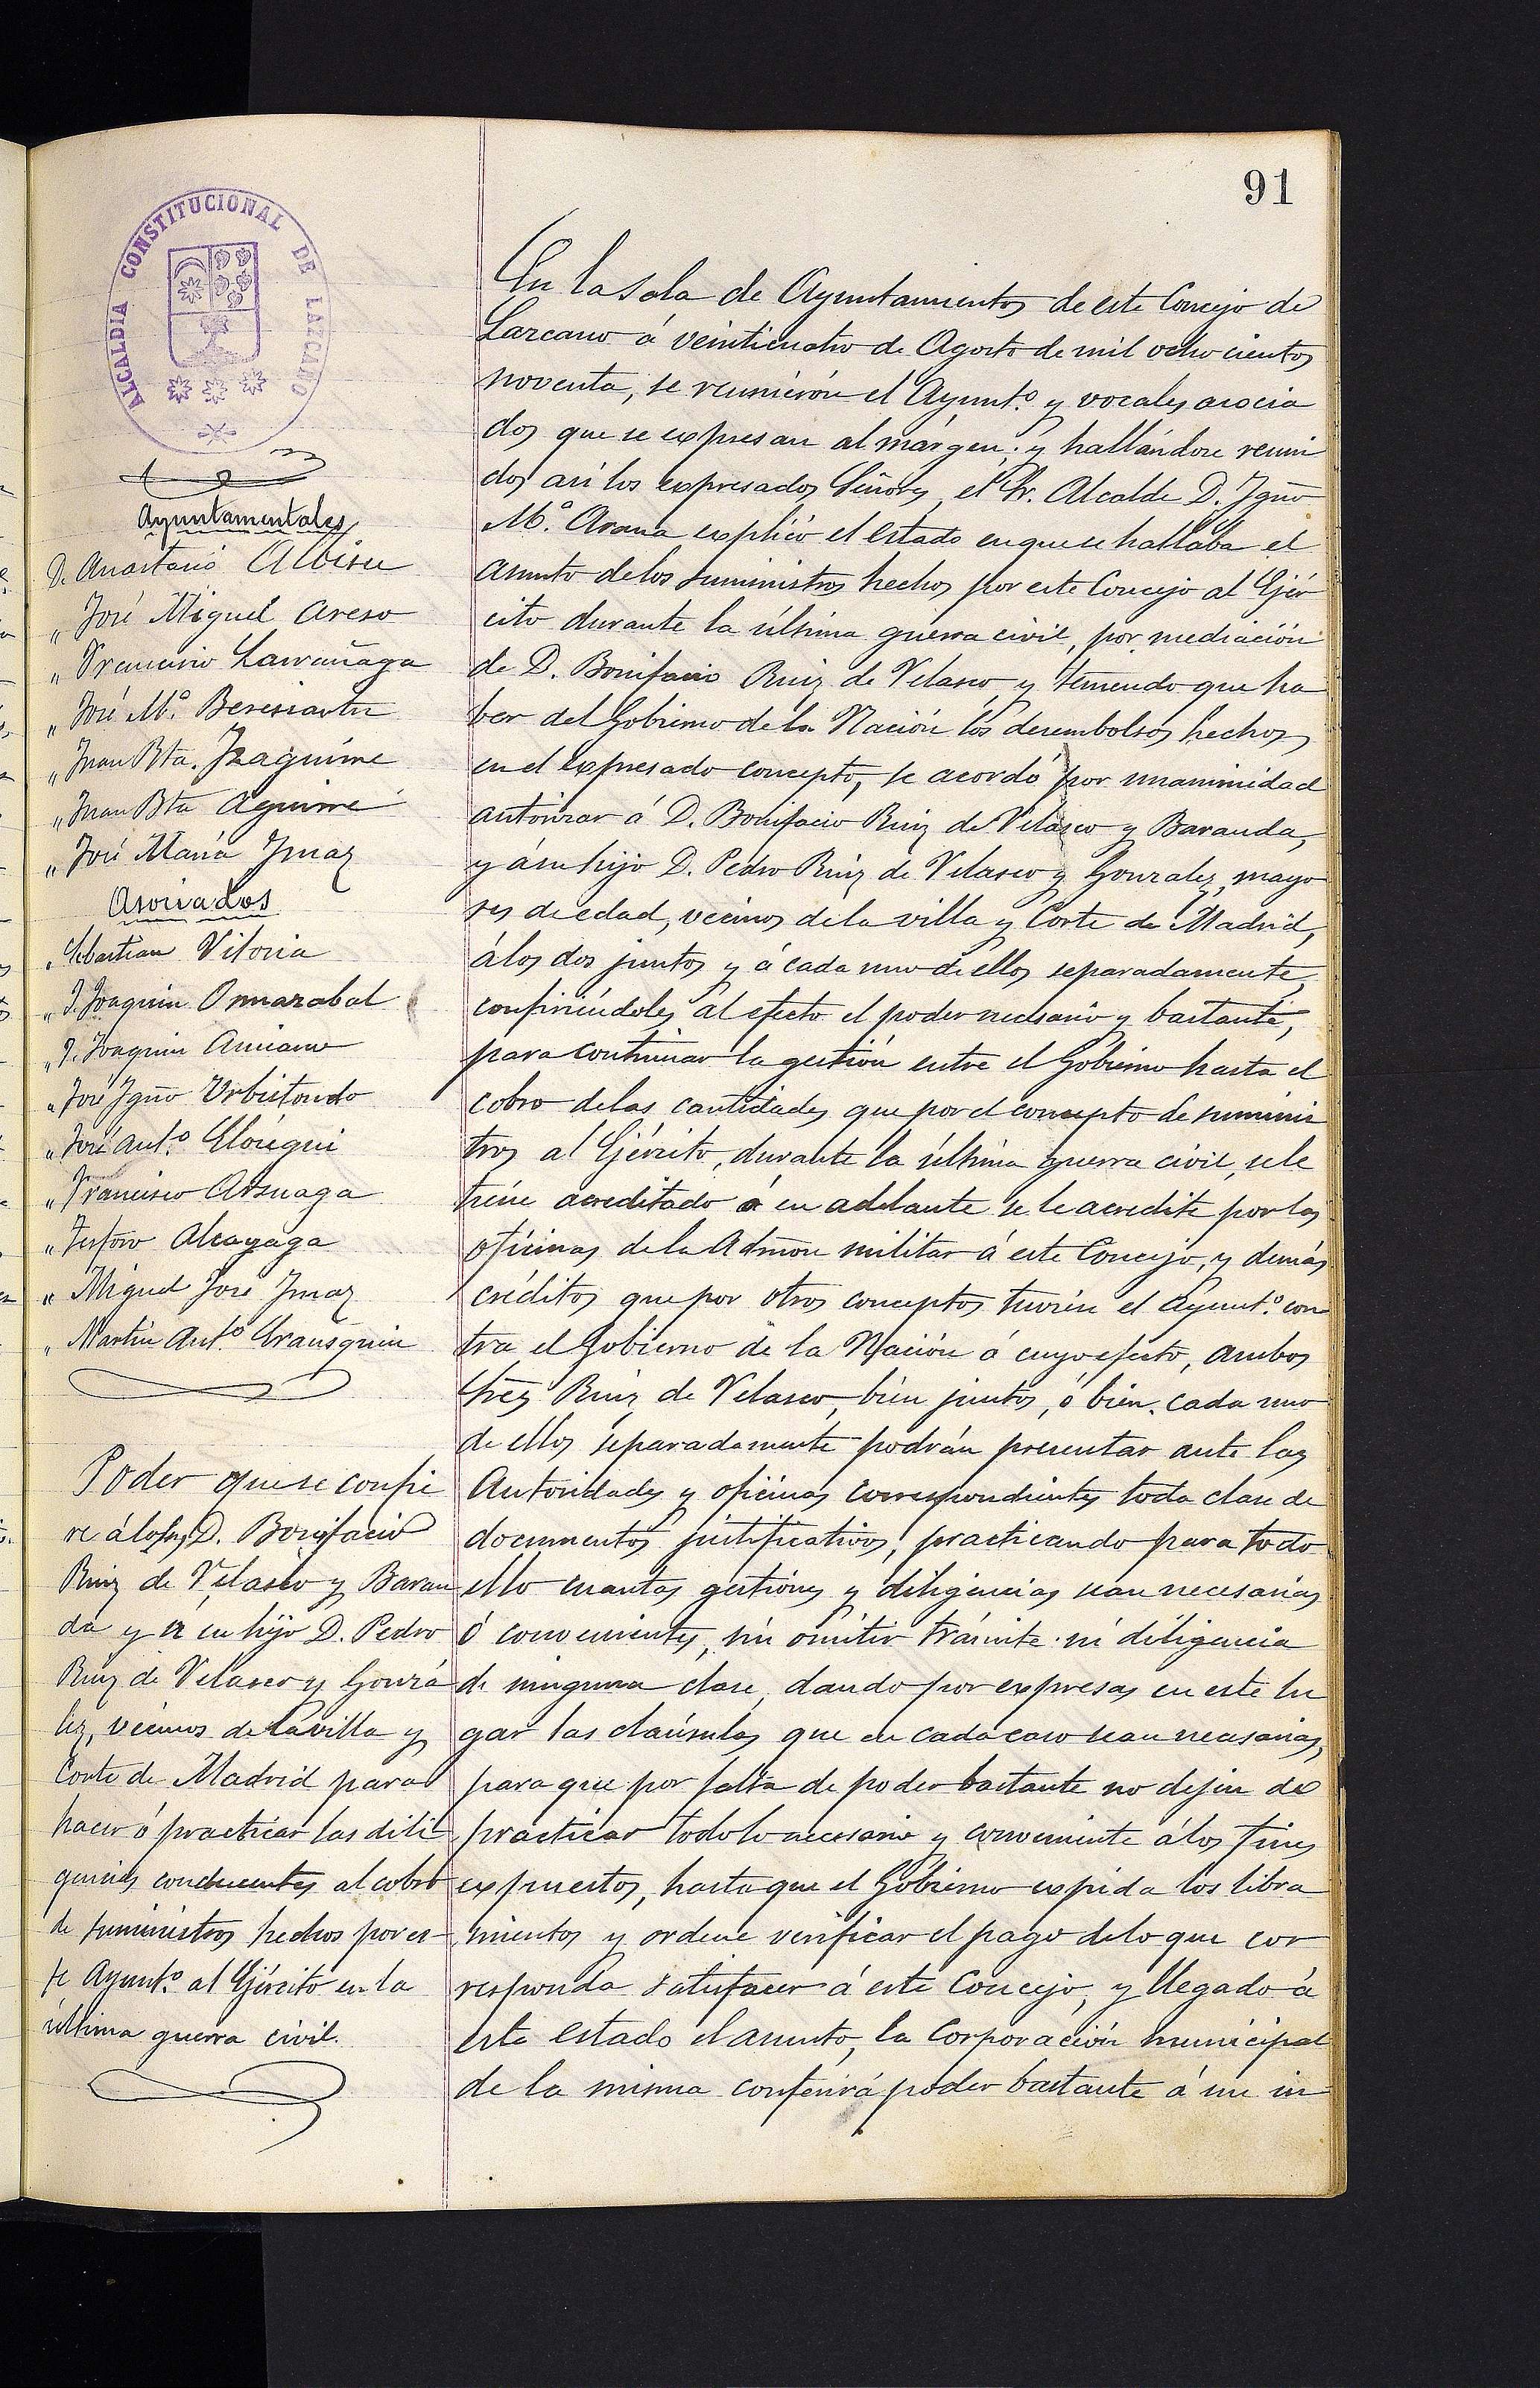 91
ALCALDIA CONSTITUCIONAL DE LAZCANO
Ayuntamentales
D. Anastasio Albisu
" José Miguel Areso
" Francisco Larrañaga
" José M.ª Beresiartu
" Juan Bta. Izaguirre
" Juan Bta Aguirre
" José María Ymaz
Asociados
" Sebastian Vitoria
" J. Joaquin Ormazabal
" J. Joaquin Amiano
" José Ygno Urbistondo
" José Ant.º Elósegui
" Francisco Arsuaga
" Alcayaga
" Miguel José Ymaz
" Martin Ant.º Yrausquin
Poder que se confie
re á los Sres D. Bonifacio
Ruiz de Velasco y Baran
da y á su hijo D. Pedro
Ruiz de Velasco y Gonzá
lez, vecinos de la villa y
Corte de Madrid para
hacer ó practicar las dili
gencias conducentes al cobro
de suministros hechos por es-
te Ayunt.º al Ejército en la
última guerra civil.
En la sala de Ayuntamientos de este Concejo de
Lazcano á veinticuatro de Agosto de mil ochocientos
noventa, se reunieron el Ayunt.º y vocales asocia
dos que se expresan al márgen; y hallándose reuni
dos así los expresados Señores, el Sr. Alcalde D. Ygno
M.ª Arana explicó el estado en que se hallaba el
asunto de los suministros hechos por este Concejo al Ejér
cito durante la última guerra civil, por mediación
de D. Bonifacio Ruiz de Velasco y teniendo que ha
ber del Gobierno de la Nación los desembolsos hechos
en el expresado concepto, se acordó por unanimidad
autorizar á D. Bonifacio Ruiz de Velasco y Baranda,
y á su hijo D. Pedro Ruiz de Velasco y Gonzalez, mayo
res de edad, vecinos de la villa y Corte de Madrid,
á los dos juntos y á cada uno de ellos separadamente,
confiriéndoles al efecto el poder necesario y bastante,
para continuar la gestión entre el Gobierno hasta el
cobro de las cantidades que por el concepto de suminis
tros al Ejército, durante la última guerra civil, se le
tiene acreditado ó en adelante se le acredite por las
oficinas de la Admon militar á este Concejo, y demás
créditos que por otros conceptos tuviere el Ayunt.º con
tra el Gobierno de la Nación á cuyo efecto, ambos
Sres Ruiz de Velasco, bien juntos, ó bien cada uno
de ellos separadamente podrán presentar ante las
Autoridades y oficinas correspondientes toda clase de
documentos justificativos, practicando para todo
ello cuantas gestiones y diligencias sean necesarias
ó convenientes, sin omitir trámite ni diligencia
de ninguna clase, dando por expresas en este lu
gar las claúsulas que en cada caso sean necesarias,
para que por falta de poder bastante no dejen de
practicar todo lo necesario y conveniente á los fines
expuestos, hasta que el Gobierno expida los libra
mientos y ordene verificar el pago de lo que cor
responda satisfacer á este Concejo, y llegado á
este estado el asunto, la Corporación municipal
de la misma conferirá poder bastante á un in